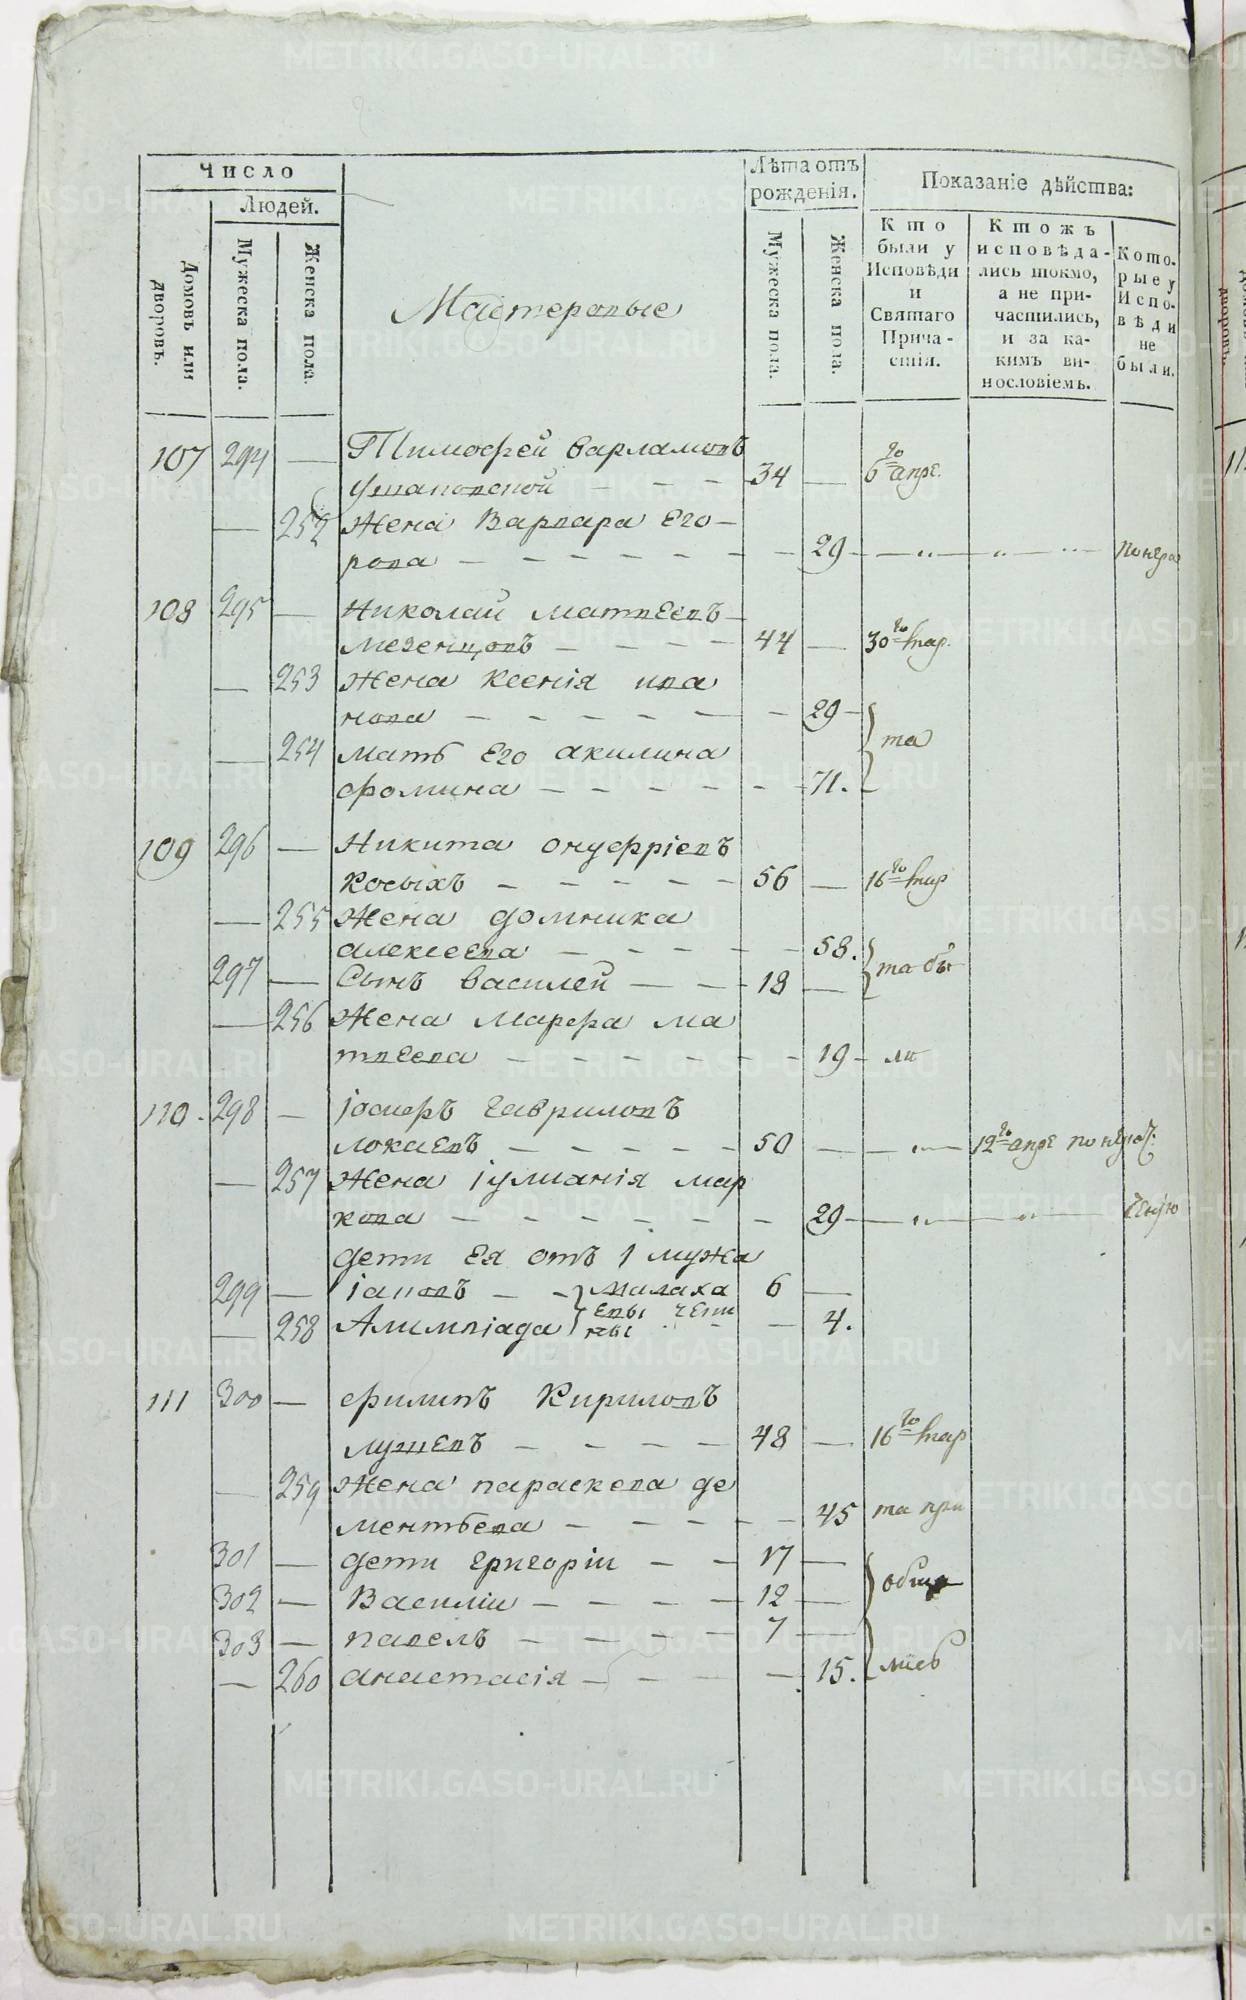 Число
Людей.
Домовъ или дворовъ.
Мужеска пола.
Женска пола.
Мастеровые
Лѣта отъ рожденія.
Мужеска пола.
Женска пола.
Показаніе дѣйства:
Кто были у Исповѣди и Святаго Причастія.
Ктожъ исповѣдались токмо, а не причастились, и за какимъ винословіемъ.
Которые у Исповѣди не были.
107 294 — Тимофей варламовъ
ушаковской — — — 34 — 6го апре.
— 252 Жена Варвара Его—
рова — — — — — — 29 — — „ — „ — „ по нера
108 295 — Николай матвеевъ—
мезенцовъ — — — — 44 — 30го мар.
— 253 жена ксенія ива
нова — — — — — — 29 —
— 254 мать Его акилина та
фомина — — — — — 71.
109 296 — Никита онуфріевъ
Косыхъ — — — — — 56 — 16го мар
— 255 Жена домника
алексеева — — — — 58.
297 — Сынъ василей — — — 18 — та бы
— 256 Жена марфа ма
твеева — — — — — — 19 — ли
110. 298 — іосифъ гавриловъ
локаевъ — — — — — 50 — — „ — 12го апре по нерач:
— 257 Жена іулианія мар
кова — — — — — — 29 — — „ — „ — ченію
дети Ея отъ 1 мужа
299 — іаковъ — — малаха 6 —
— 258 Алимпіада евы чети ны — — 4.
111 300 — филипъ Кириловъ
лушевъ — — — — 48 — 16го мар
— 259 Жена параскева де
ментьева — — — — — 45 та при
301 — дети григоріи — — 17 —
302 — Василіи — — — — 12 — обща
303 — павелъ — — — — 7 —
— 260 анастасія — — — — 15. лись
METRIKI.GASO-URAL.RU